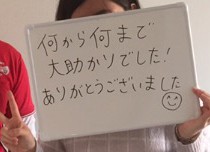 何から何まで
大助かりでした!
ありがとうございました